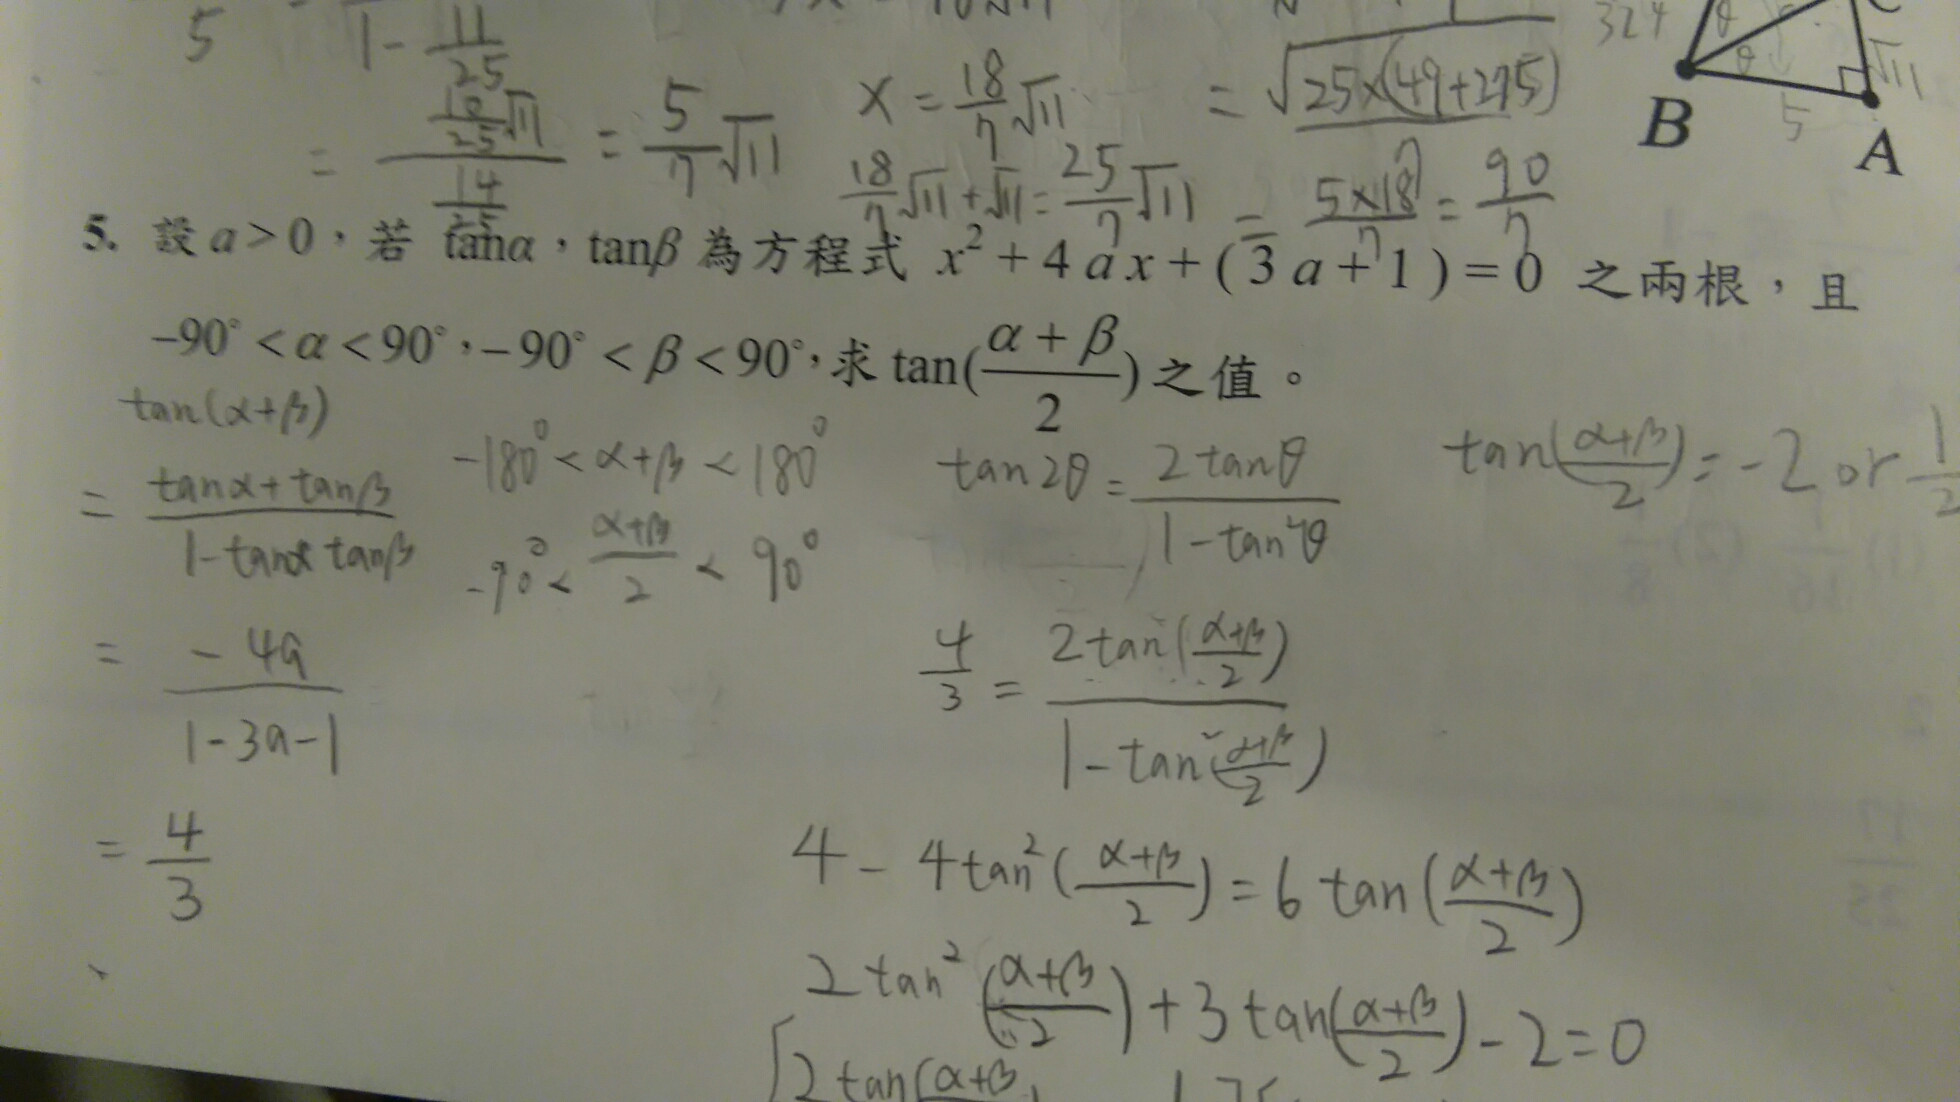 5
1 - 11/25
= (10/25 √11)/(14/25) = 5/7 √11
x = 18/7 √11
18/7 √11 + √11 = 25/7 √11
= √(25×(49+275))
= (5×18)/7 = 90/7
324
θ
θ
√11
5
B
A
5. 設 a > 0,若 tanα,tanβ 為方程式 x² + 4 a x + ( 3 a + 1 ) = 0 之兩根,且
-90° < α < 90°,-90° < β < 90°,求 tan((α + β)/2) 之值。
tan(α+β)
= (tanα + tanβ)/(1 - tanα tanβ)
= -4a/(1-3a-1)
= 4/3
-180° < α+β < 180°
-90° < (α+β)/2 < 90°
tan2θ = 2tanθ/(1 - tan²θ)
4/3 = 2tan((α+β)/2)/(1 - tan²((α+β)/2))
4 - 4tan²((α+β)/2) = 6 tan((α+β)/2)
2 tan²((α+β)/2) + 3 tan((α+β)/2) - 2 = 0
[2 tan(α+β
tan((α+β)/2) = -2 or 1/2